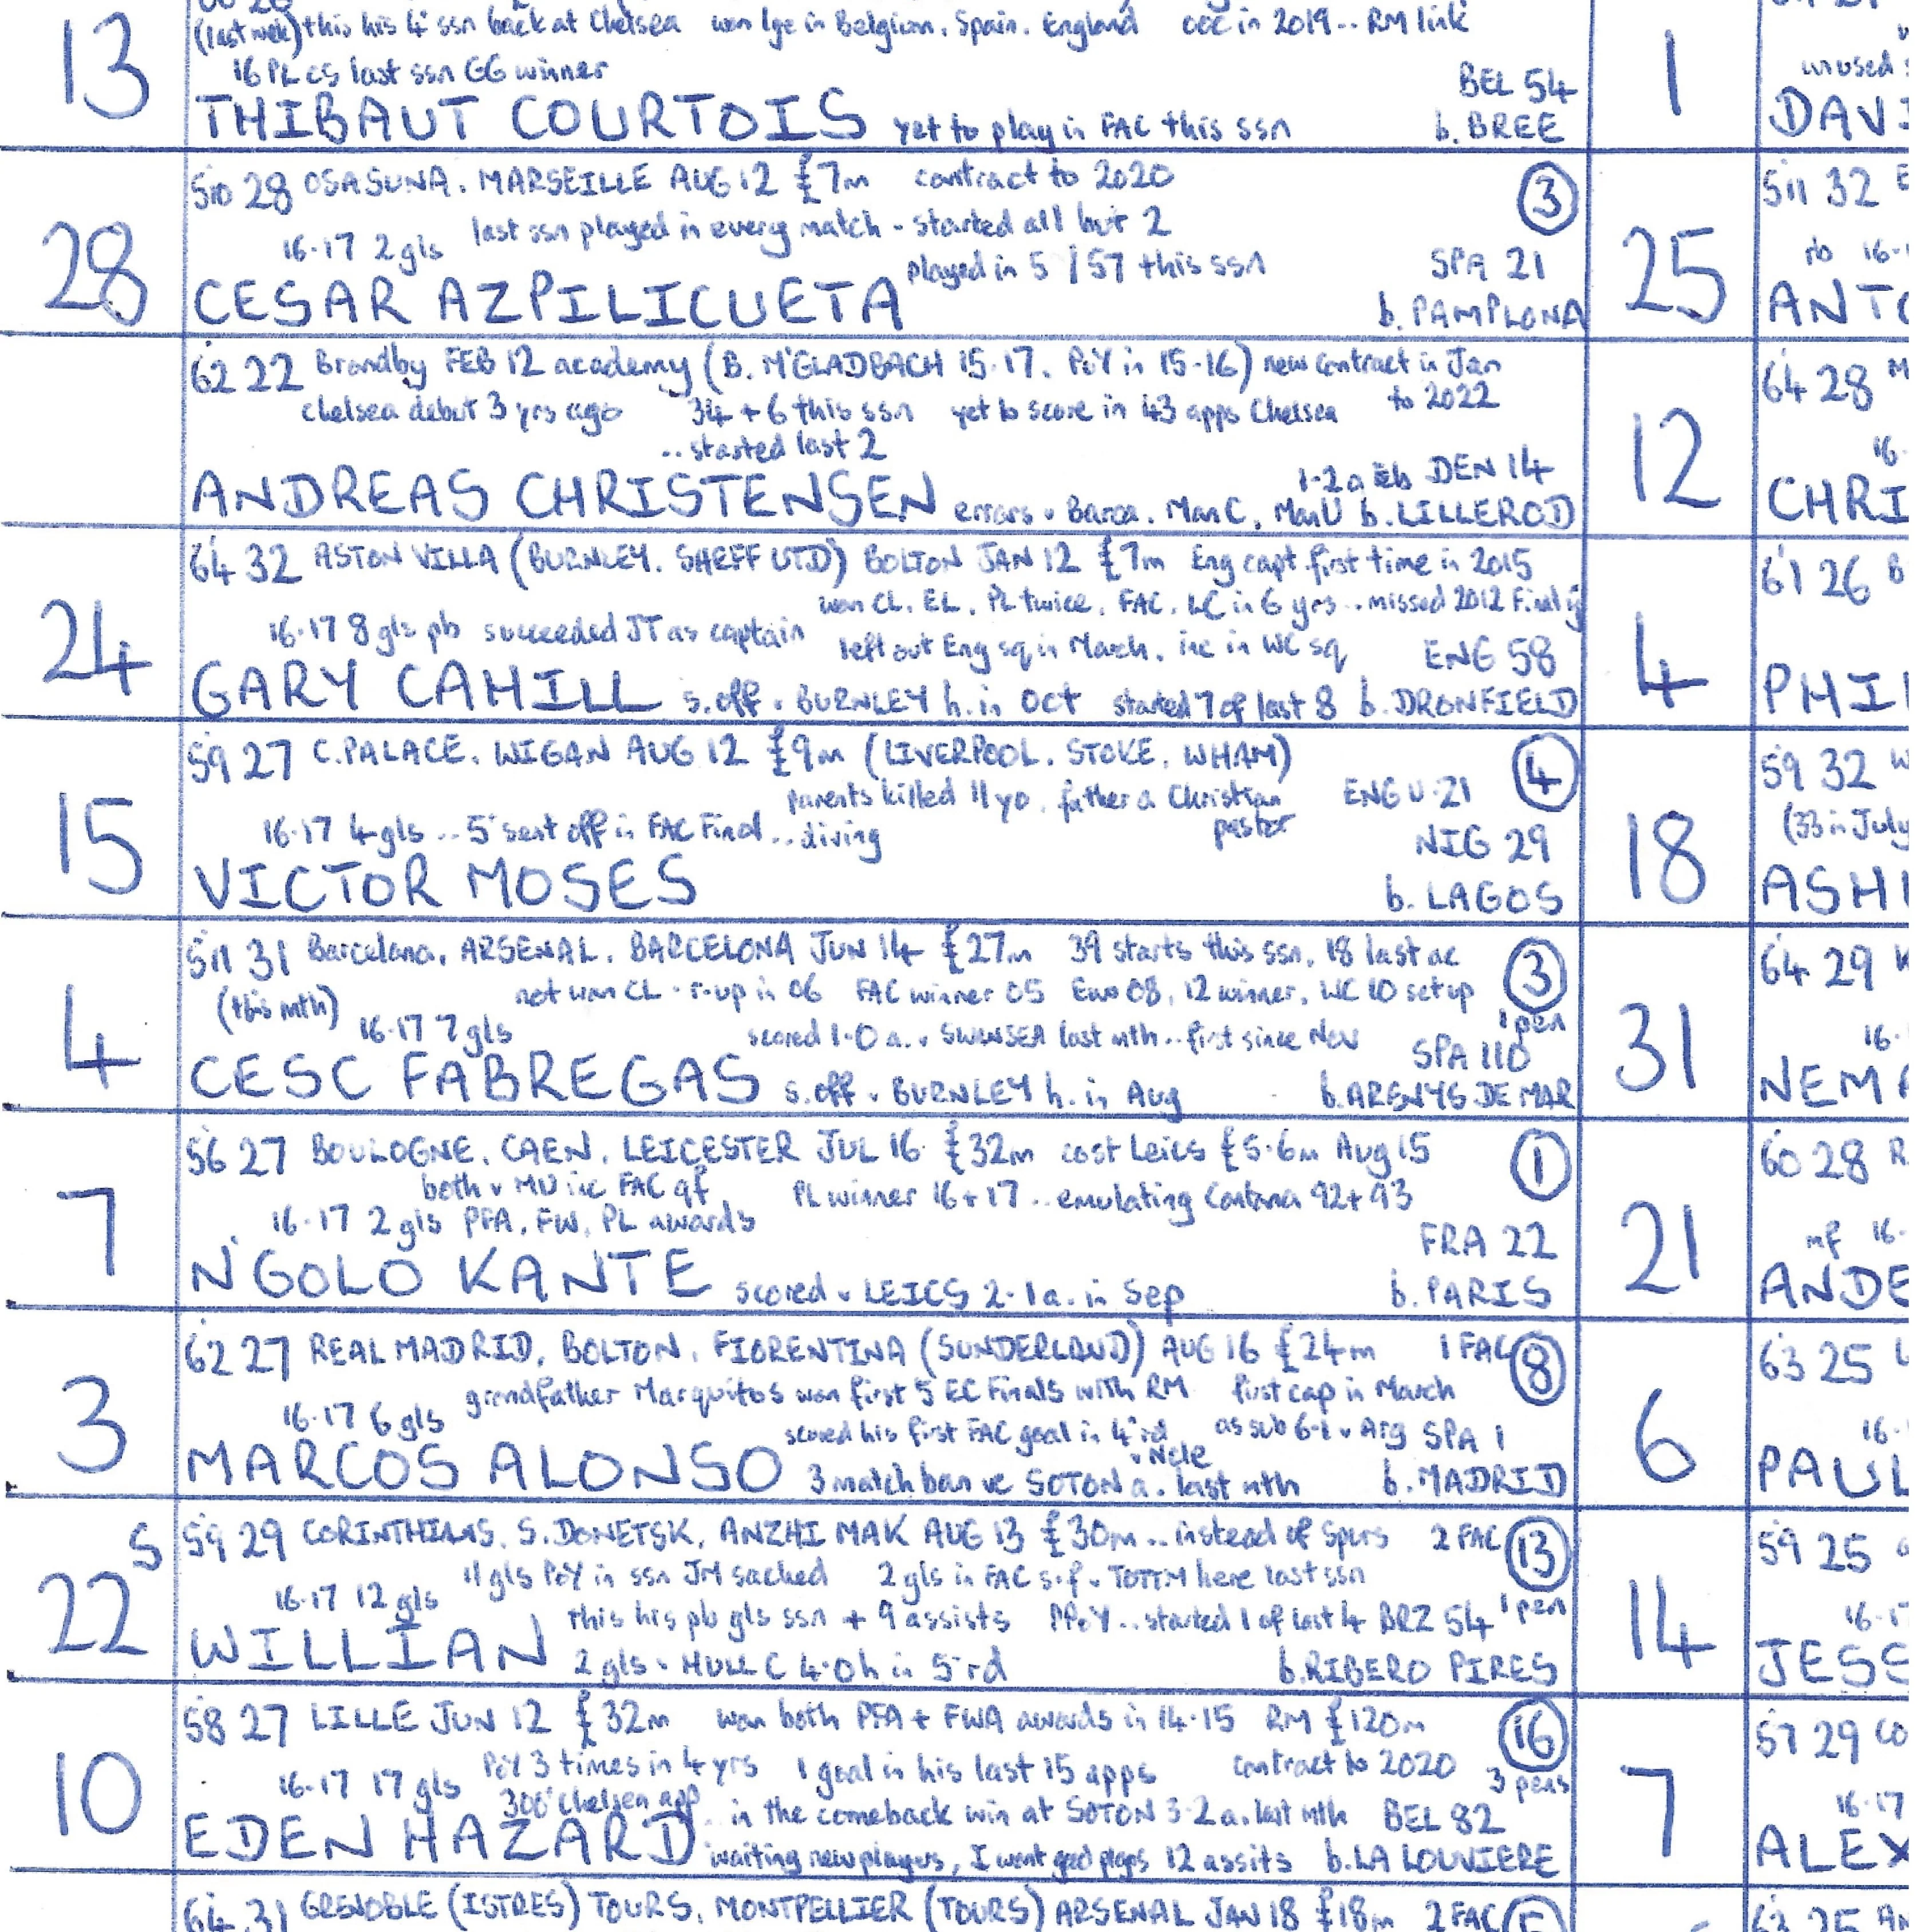 13
(last week) this his 4th ssn back at Chelsea won lge in Belgium, Spain, England ooc in 2019.. RM link
16 PL cs last ssn GG winner
BEL 54
THIBAUT COURTOIS yet to play in FAC this ssn b. BREE
28
5'10 28 OSASUNA, MARSEILLE AUG 12 £7m contract to 2020 3
16-17 2 gls last ssn played in every match - started all but 2
played in 51/57 this ssn SPA 21
CESAR AZPILICUETA b. PAMPLONA
6'2 22 Brondby FEB 12 academy (B. M'GLADBACH 15-17, PoY in 15-16) new contract in Jan
Chelsea debut 3 yrs ago 34 + 6 this ssn yet to score in 43 apps Chelsea to 2022
.. started last 2
DEN 14
ANDREAS CHRISTENSEN errors v Barca, Man C, Man U b. LILLEROD
24
6'4 32 ASTON VILLA (BURNLEY, SHEFF UTD) BOLTON JAN 12 £7m Eng capt first time in 2015
won CL, EL, PL twice, FAC, LC in 6 yrs .. missed 2012 Final inj
16-17 8 gls pb succeeded JT as captain left out Eng sq in March, inc in WC sq ENG 58
GARY CAHILL s.off v BURNLEY h. in Oct started 7 of last 8 b. DRONFIELD
15
5'9 27 C.PALACE, WIGAN AUG 12 £9m (LIVERPOOL, STOKE, WHAM) 4
parents killed 11 yo, father a Christian pastor ENG U-21
16-17 4 gls .. 5th sent off in FAC Final .. diving
NIG 29
VICTOR MOSES b. LAGOS
4
5'11 31 Barcelona, ARSENAL, BARCELONA JUN 14 £27m 39 starts this ssn, 18 last 3
(this mth) not won CL - r-up in 06 FAC winner 05 Euro 08, 12 winner, WC 10 set up
1 pen
16-17 7 gls scored 1-0 a. v SWANSEA last mth .. first since Nov SPA 110
CESC FABREGAS s.off v BURNLEY h. in Aug b. ARENYS DE MAR
7
5'6 27 BOULOGNE, CAEN, LEICESTER JUL 16 £32m cost Leics £5.6m Aug 15 1
both v MU inc FAC qf PL winner 16 + 17 .. emulating Cantona 92 + 93
16-17 2 gls PFA, FW, PL awards
FRA 22
N'GOLO KANTE scored v LEICS 2-1 a. in Sep b. PARIS
3
6'2 27 REAL MADRID, BOLTON, FIORENTINA (SUNDERLAND) AUG 16 £24m 1 FAC 8
16-17 6 gls grandfather Marquitos won first 5 EC Finals with RM first cap in March
scored his first FAC goal in 4th rd v Ncle as sub 6-1 v Arg SPA 1
MARCOS ALONSO 3 match ban v SOTON a. last mth b. MADRID
22 S
5'9 29 CORINTHIANS, S.DONETSK, ANZHI MAK AUG 13 £30m .. instead of Spurs 2 FAC 13
11 gls PoY in ssn JM sacked 2 gls in FAC s-f v TOTTM here last ssn
16-17 12 gls this his pb gls ssn + 9 assists PPoY .. started 1 of last 4 BRZ 54 1 pen
WILLIAN 2 gls v HULL C 4-0 h in 5th rd b. RIBERO PIRES
10
5'8 27 LILLE JUN 12 £32m won both PFA + FWA awards in 14-15 RM £120m 16
PoY 3 times in 4 yrs 1 goal in his last 15 apps contract to 2020 3 pens
16-17 17 gls 300th Chelsea app .. in the comeback win at SOTON 3-2 a. last mth BEL 82
EDEN HAZARD waiting new players, I want good players 12 assits b. LA LOUVIERE
6'4 31 GRENOBLE (ISTRES) TOURS, MONTPELLIER (TOURS) ARSENAL JAN 18 £18m 2 FAC
1
unused
DAVI
25
5'11 32
rb 16-
ANTO
12
6'4 28 M
16-
CHRI
4
6'1 26 B
PHI
18
5'9 32 W
(33 in July
ASH
31
6'4 29
16-
NEMA
21
6'0 28 R
mf 16-
ANDE
6
6'3 25
16-
PAUL
14
5'9 25
16-17
JESS
7
5'7 29 CO
16-17
ALEX